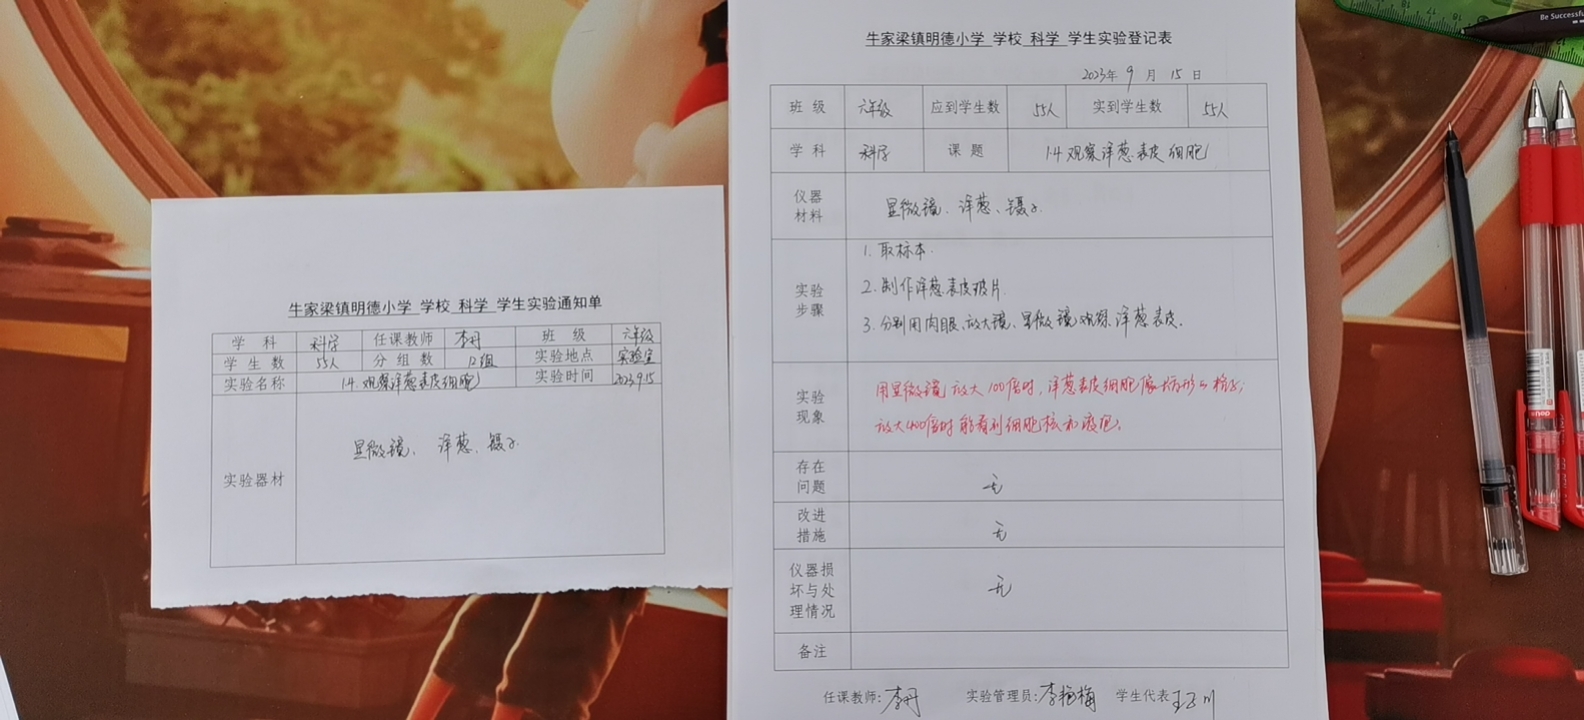 牛家梁镇明德小学 学校 科学 学生实验通知单
学科 科学 任课教师 李丹 班级 六年级
学生数 55人 分组数 12组 实验地点 实验室
实验名称 14.观察洋葱表皮细胞 实验时间 2023.9.15
实验器材 显微镜、洋葱、镊子
牛家梁镇明德小学 学校 科学 学生实验登记表
2023年 9 月 15 日
班级 六年级 应到学生数 55人 实到学生数 55人
学科 科学 课题 14观察洋葱表皮细胞
仪器材料 显微镜、洋葱、镊子
实验步骤
1. 取标本
2. 制作洋葱表皮玻片
3. 分别用肉眼、放大镜、显微镜观察洋葱表皮.
实验现象
用显微镜放大100倍时,洋葱表皮细胞像长方形的格子;
放大400倍时能看到细胞核和液泡。
存在问题 无
改进措施 无
仪器损坏与处理情况 无
备注
任课教师: 李丹 实验管理员: 李艳梅 学生代表
Be Successful